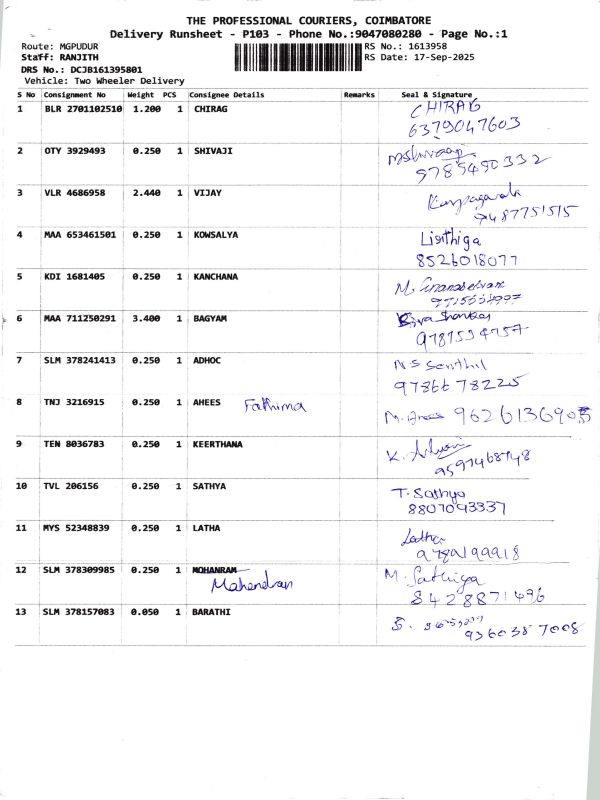 THE PROFESSIONAL COURIERS, COIMBATORE
Delivery Runsheet - P103 - Phone No.:9047080280 - Page No.:1
Route: MGPUDUR RS No.: 1613958
Staff: RANJITH RS Date: 17-Sep-2025
DRS No.: DCJB161395801
Vehicle: Two Wheeler Delivery
S No Consignment No Weight PCS Consignee Details Remarks Seal & Signature
1 BLR 2701102510 1.200 1 CHIRAG CHIRAG
6379047603
2 OTY 3929493 0.250 1 SHIVAJI
9785490332
3 VLR 4686958 2.440 1 VIJAY
9487751515
4 MAA 653461501 0.250 1 KOWSALYA Lisithiga
8526018077
5 KDI 1681405 0.250 1 KANCHANA M.
6 MAA 711250291 3.400 1 BAGYAM Siva Shankar
9787534757
7 SLM 378241413 0.250 1 ADHOC N S Senthil
9786678225
8 TNJ 3216915 0.250 1 AHEES Fathima M. Anees
9 TEN 8036783 0.250 1 KEERTHANA K.
10 TVL 206156 0.250 1 SATHYA T. Sathya
8807093337
11 MYS 52348839 0.250 1 LATHA Latha
9789199918
12 SLM 378309985 0.250 1 MOHANRAM M. Sathiya
Mahendran 8428871496
13 SLM 378157083 0.050 1 BARATHI S.
9360387008